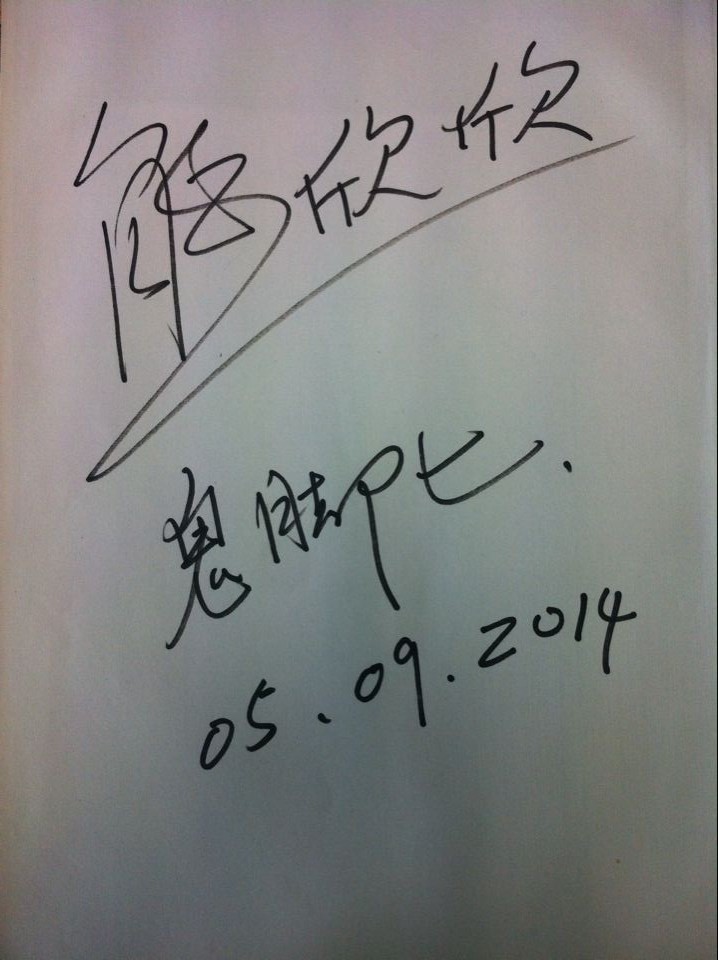 熊欣欣
鬼脚七.
05.09.2014